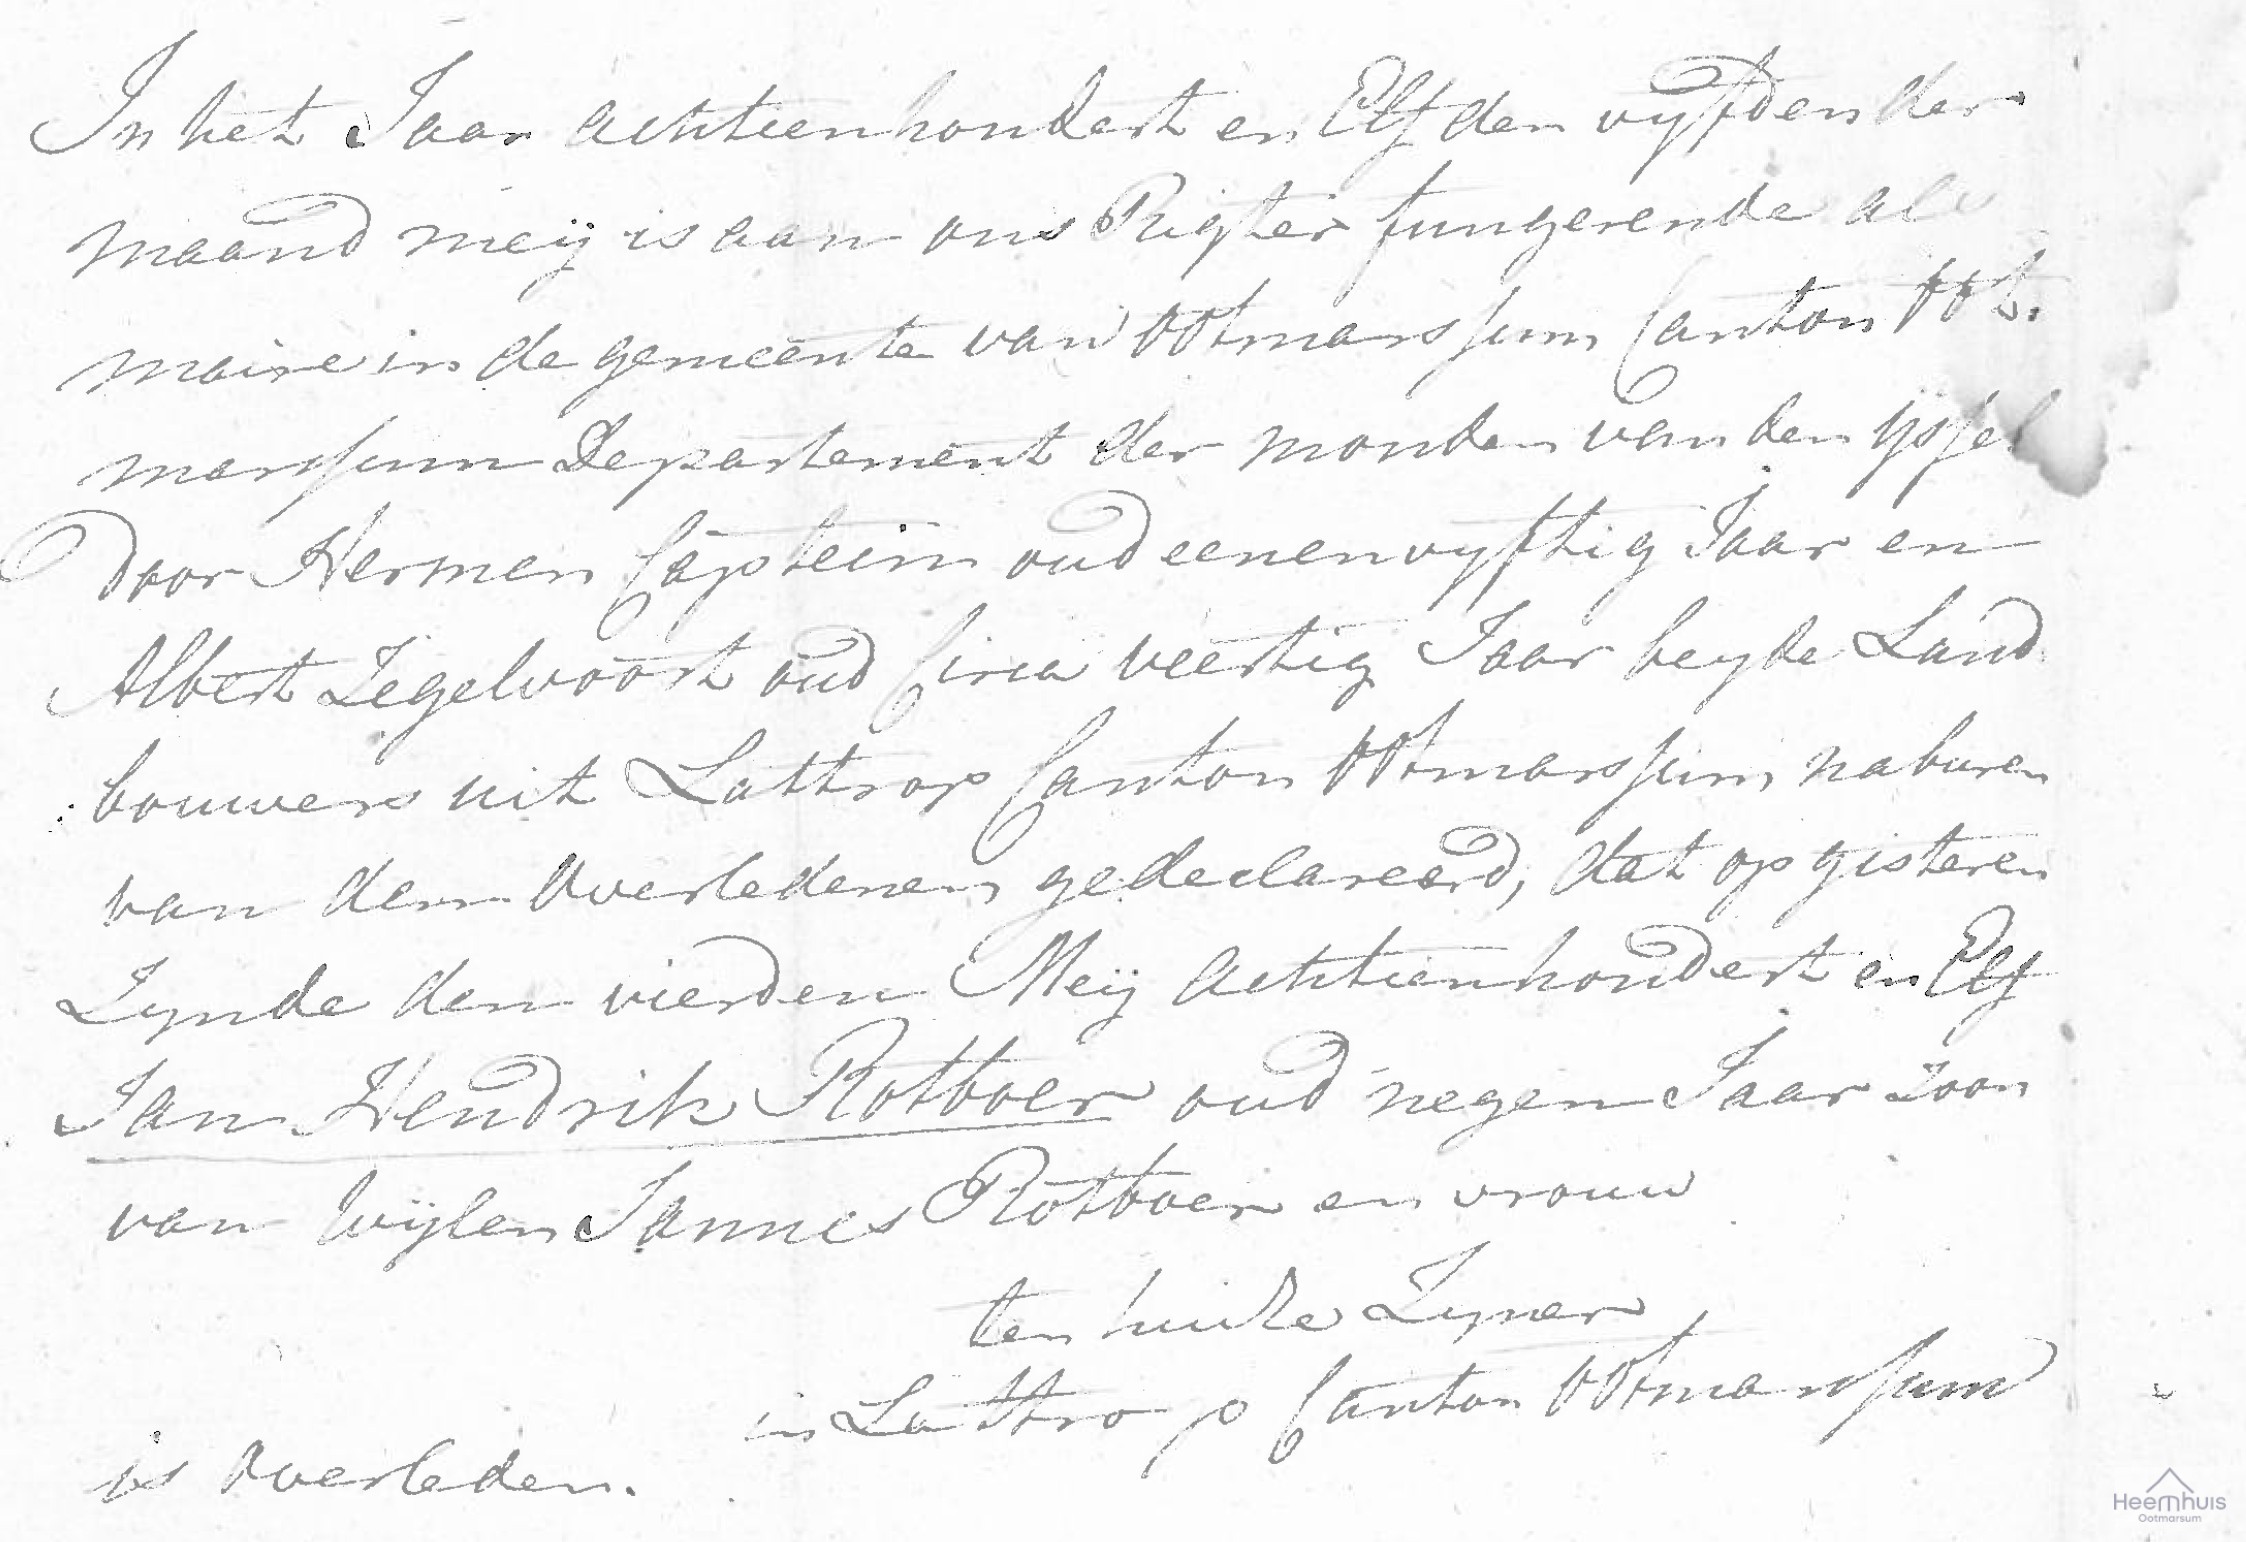 In het Jaar achttienhondert en Elf den vyfden der
maand meij is aan ons Rigter fungerende als
maire in de gemeente van Ootmarssum Canton Oot.
marssum Departement der monden van den ijssel
Door Hermen Capstein oud eenenvyftig Jaar en
Albert Zegelvoort oud Circa veertig Jaar beyde Land
bouwers uit Lattrop Canton Ootmarssum naburen
van den Overledenen gedeclareerd, dat op gisteren
Zynde den vierden Meij Achttienhondert en Elf
Jan Hendrik Rotboer oud negen Jaar zoon
van Wijlen Jannes Rotboer en vrouw
ten huize Zyner
in Lattrop Canton Ootmarssum
is Overleden.
Heemhuis
Ootmarsum